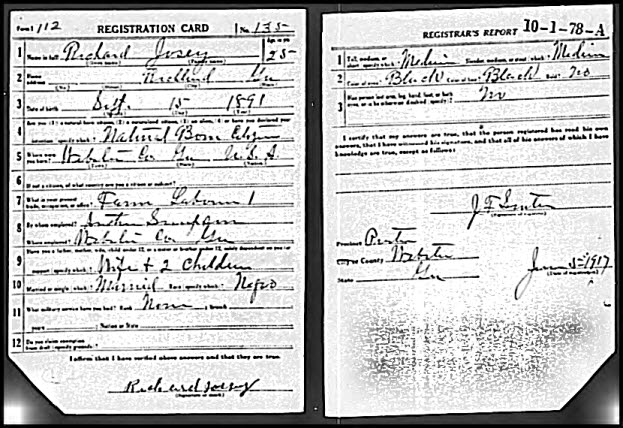 Form 1 112 REGISTRATION CARD No. 135
1 Name in full Richard Josey Age, in yrs. 25
(Given name) (Family name)
2 Home address Richland Ga
(No.) (Street) (City) (State)
3 Date of birth Sept. 15 1891
(Month) (Day) (Year)
4 Are you (1) a natural-born citizen, (2) a naturalized citizen, (3) an alien, (4) or have you declared your
intention (specify which)? Natural Born
5 Where were you born? Webster Co Ga U.S.A.
(Town) (State) (Nation)
6 If not a citizen, of what country are you a citizen or subject?
7 What is your present trade, occupation, or office? Farm Laborer 1
8 By whom employed?
Where employed? Webster Co Ga
9 Have you a father, mother, wife, child under 12, or a sister or brother under 12, solely dependent on you for
support (specify which)? Wife + 2 Children
10 Married or single (which)? Married Race (specify which)? Negro
11 What military service have you had? Rank None ; branch
years ; Nation or State
12 Do you claim exemption from draft (specify grounds)?
I affirm that I have verified above answers and that they are true.
Richard Josey
(Signature or mark)
REGISTRAR'S REPORT 10-1-78-A
1 Tall, medium, or short (specify which)? Medium Slender, medium, or stout (which)? Medium
2 Color of eyes? Black Color of hair? Black Bald? No
3 Has person lost arm, leg, hand, foot, or both eyes, or is he otherwise disabled (specify)? No
I certify that my answers are true, that the person registered has read his own
answers, that I have witnessed his signature, and that all of his answers of which I have
knowledge are true, except as follows:
(Signature of registrar)
Precinct
City or County Webster
State Ga
June 5-1917
(Date of registration)